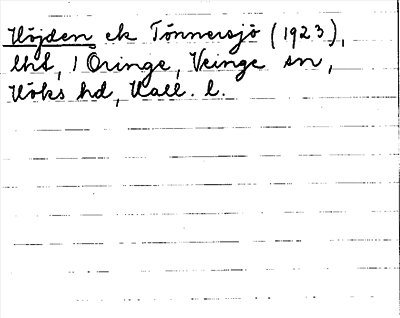 Höjden ek Tönnersjö (1923),
lht, 1 Oringe, Veinge sn,
Höks hd, Hall. l.